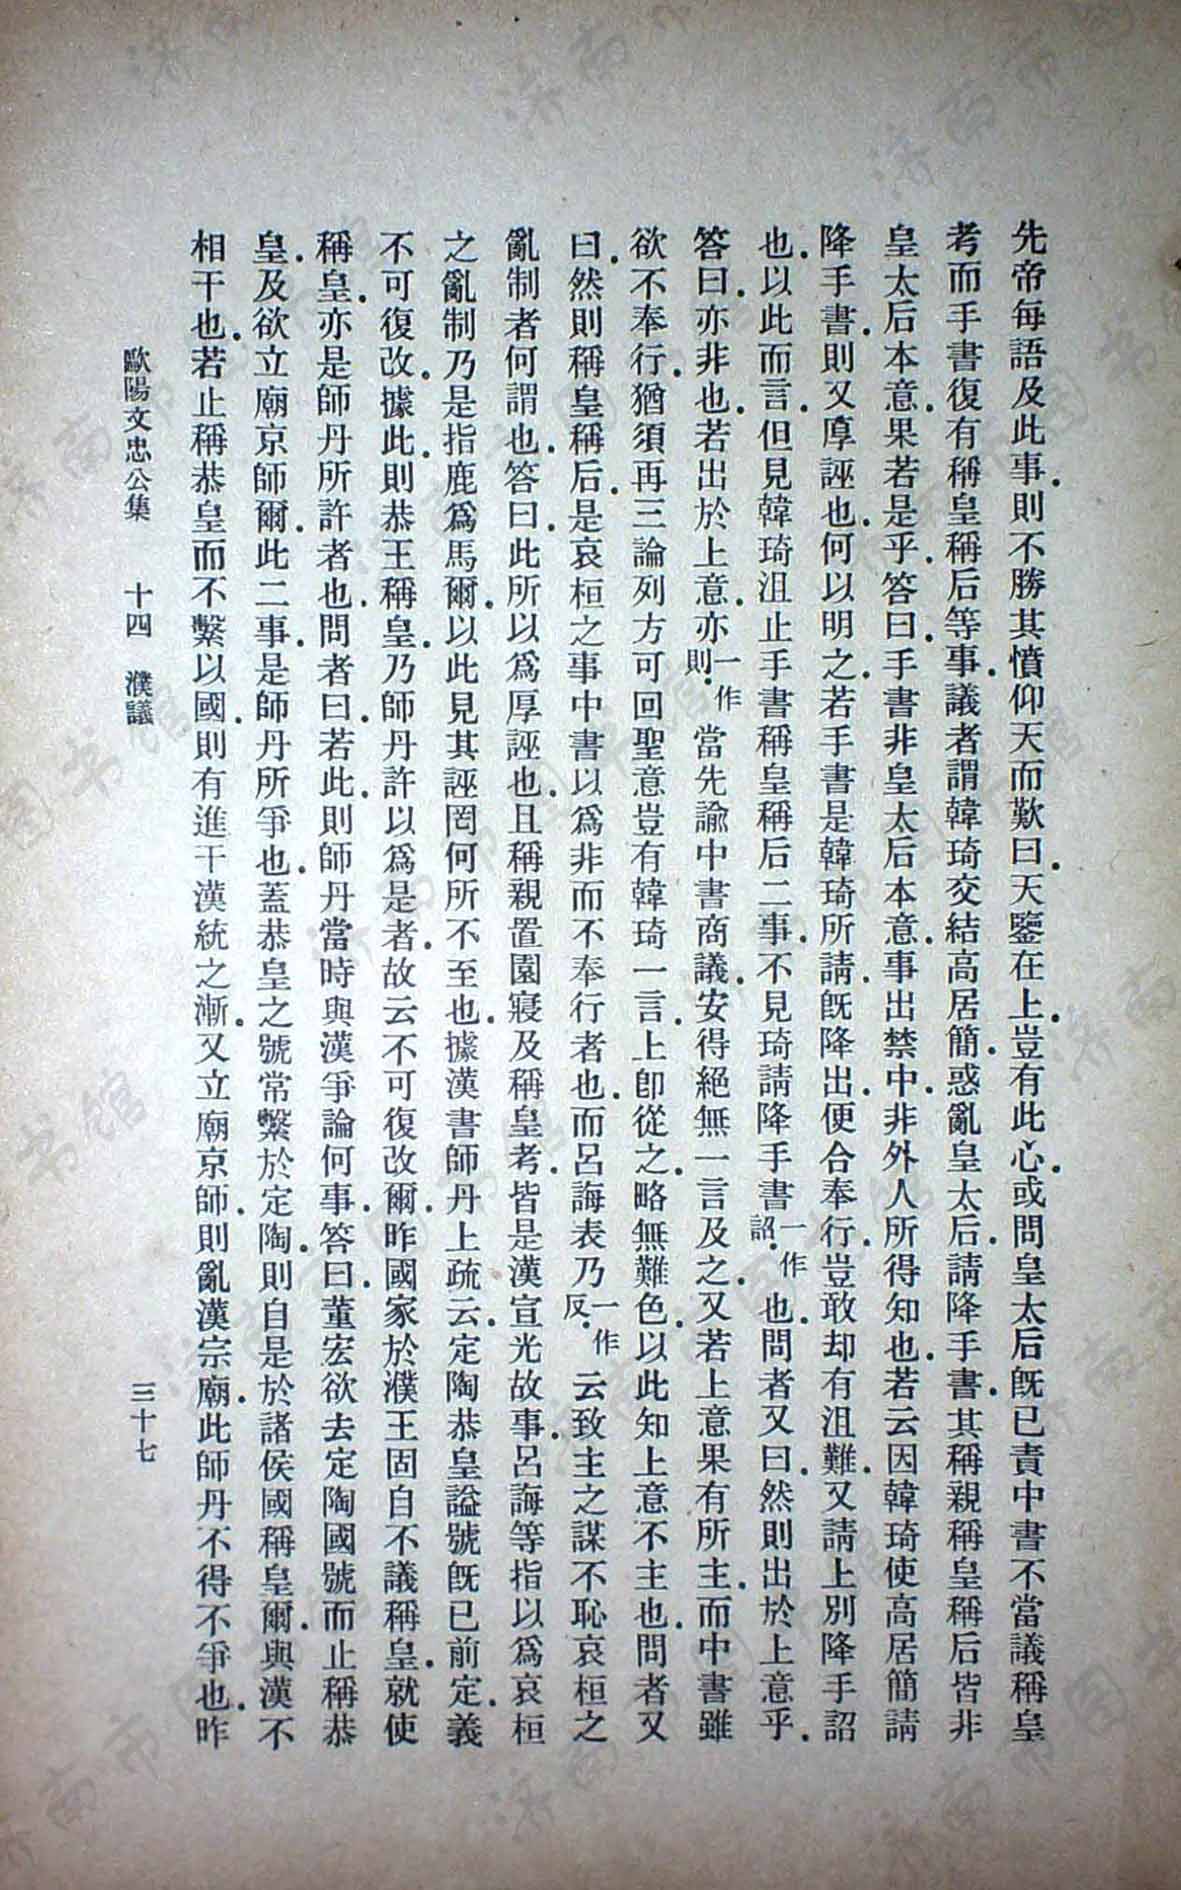 先帝每語及此事則不勝其憤仰天而歎曰天鑒在上豈有此心或問皇太后旣已責中書不當議稱皇
考而手書復有稱皇稱后等事議者謂韓琦交結高居簡惑亂皇太后請降手書其稱親稱皇稱后皆非
皇太后本意果若是乎答曰手書非皇太后本意事出禁中非外人所得知也若云因韓琦使高居簡請
降手書則又厚誣也何以明之若手書是韓琦所請旣降出便合奉行豈敢却有沮難又請上別降手詔
也以此而言但見韓琦沮止手書稱皇稱后二事不見琦請降手書一作詔也問者又曰然則出於上意乎
答曰亦非也若出於上意亦一作則當先諭中書商議安得絕無一言及之又若上意果有所主而中書雖
欲不奉行猶須再三論列方可回聖意豈有韓琦一言上卽從之略無難色以此知上意不主也問者又
曰然則稱皇稱后是哀桓之事中書以爲非而不奉行者也而呂誨表乃一作反云致主之謀不恥哀桓之
亂制者何謂也答曰此所以爲厚誣也且稱親置園寢及稱皇考皆是漢宣光故事呂誨等指以爲哀桓
之亂制乃是指鹿爲馬爾以此見其誣罔何所不至也據漢書師丹上疏云定陶恭皇謚號旣已前定義
不可復改據此則恭王稱皇乃師丹許以爲是者故云不可復改爾昨國家於濮王固自不議稱皇就使
稱皇亦是師丹所許者也問者曰若此則師丹當時與漢爭論何事答曰董宏欲去定陶國號而止稱恭
皇及欲立廟京師爾此二事是師丹所爭也蓋恭皇之號常繫於定陶則自是於諸侯國稱皇爾與漢不
相干也若止稱恭皇而不繫以國則有進干漢統之漸又立廟京師則亂漢宗廟此師丹不得不爭也昨
歐陽文忠公集 十四 濮議 三十七